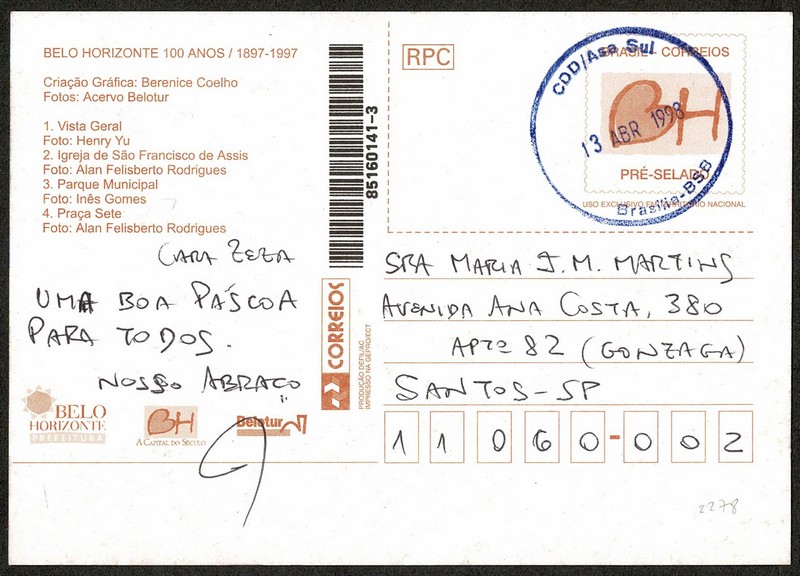 BELO HORIZONTE 100 ANOS / 1897-1997
Criação Gráfica: Berenice Coelho
Fotos: Acervo Belotur
1. Vista Geral
Foto: Henry Yu
2. Igreja de São Francisco de Assis
Foto: Alan Felisberto Rodrigues
3. Parque Municipal
Foto: Inês Gomes
4. Praça Sete
Foto: Alan Felisberto Rodrigues
CARA ZEZA
UMA BOA PÁSCOA
PARA TODOS.
NOSSO ABRAÇO
BELO
HORIZONTE
PREFEITURA
BH
A CAPITAL DO SÉCULO
Belotur
85160141-3
CORREIOS
PRODUÇÃO DEFIL/AC
IMPRESSO NA GEPRO/ECT
RPC
BRASIL CORREIOS
BH
PRÉ-SELADO
USO EXCLUSIVO EM TERRITÓRIO NACIONAL
CDD/Asa Sul
13 ABR 1998
Brasília-BSB
SRA MARIA J. M. MARTINS
AVENIDA ANA COSTA, 380
APTO 82 (GONZAGA)
SANTOS-SP
11060-002
2278